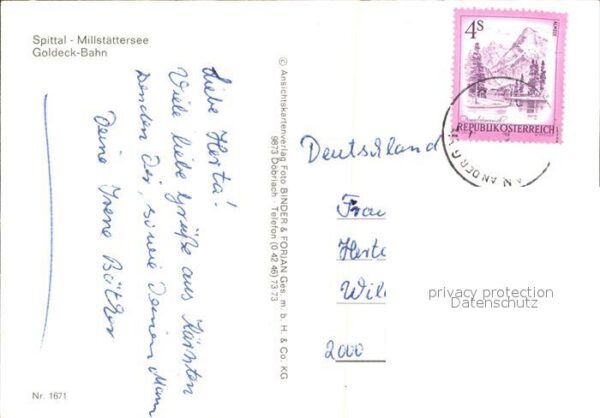 Spittal - Millstättersee
Goldeck-Bahn
Liebe Herta!
Viele liebe Grüße aus Kärnten
senden Dir, sowie Deinem Mann
Deine Irene
© Ansichtskartenverlag Foto BINDER & FORJAN Ges. m. b. H. & Co. KG
9873 Döbriach - Telefon (0 42 46) 73 73
4S
REPUBLIK ÖSTERREICH
Deutschland
Frau
Herta
2000
privacy protection
Datenschutz
Nr. 1671